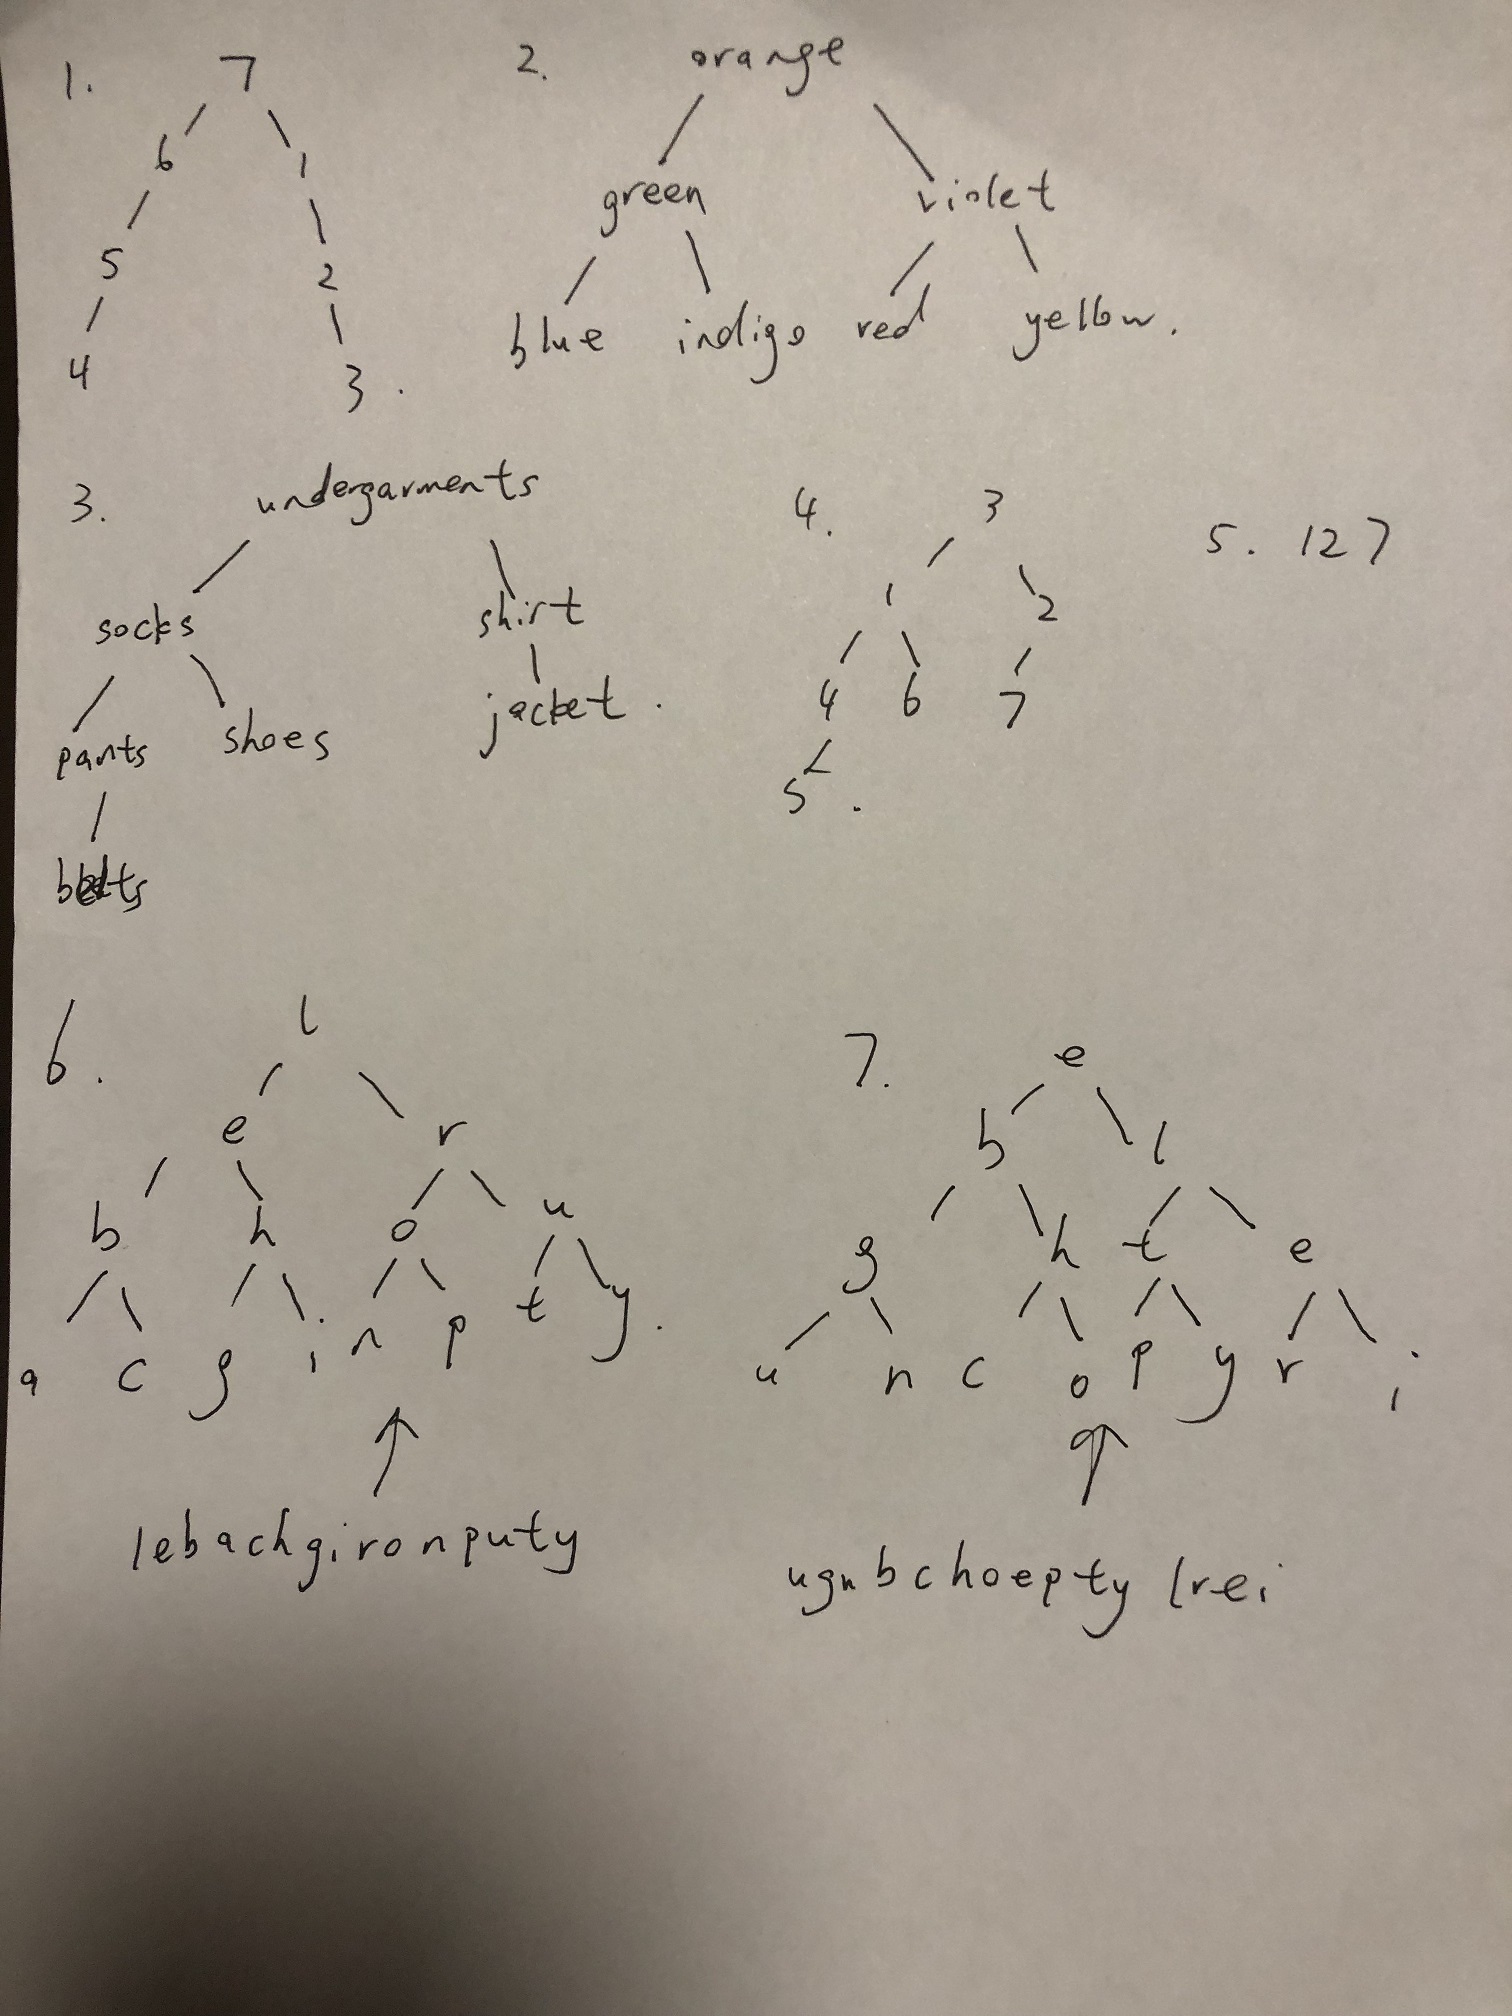 1. 7
6 1
5 2
4 3.
2. orange
green violet
blue indigo red yellow.
3. undergarments
socks shirt
pants shoes jacket.
belts
4. 3
1 2
4 6 7
5.
5. 127
6. l
e r
b h o u
a c g i n p t y.
lebachgironputy
7. e
b l
g h t e
u n c o p y r i
ugnbchoepty lrei